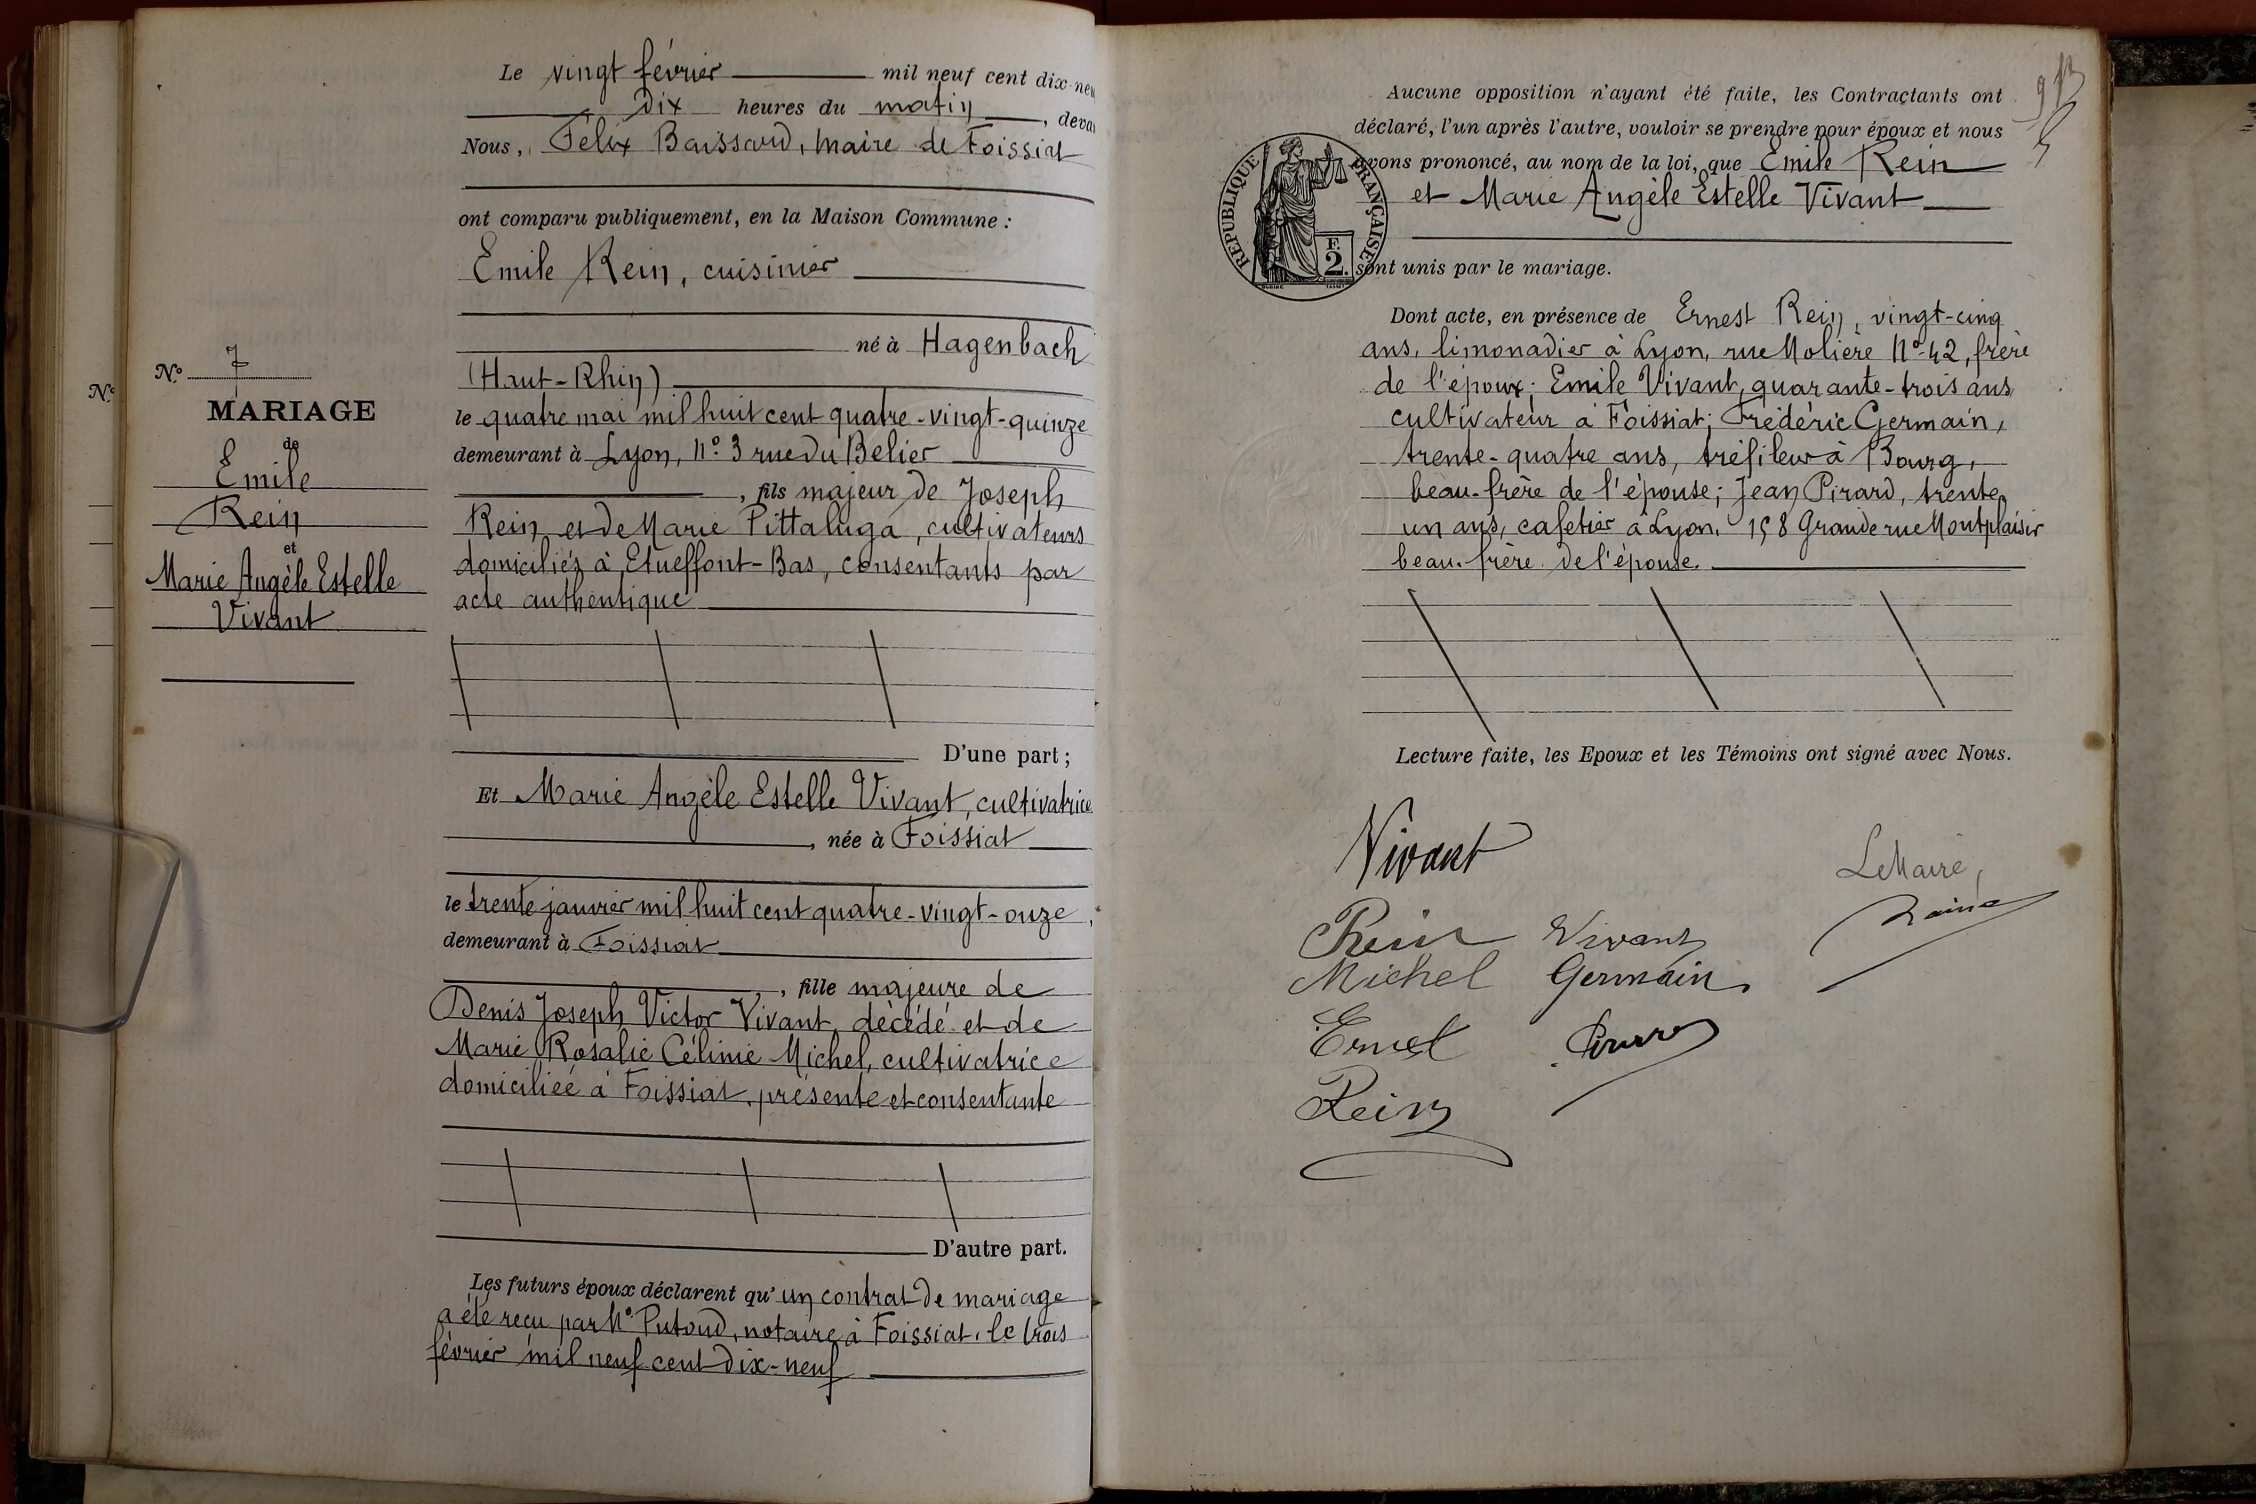 Le vingt février mil neuf cent dix-neu
dix heures du matin, deva
Nous, Félix Baissard, maire de Foissiat
ont comparu publiquement, en la Maison Commune :
Emile Rein, cuisinier
né à Hagenbach
(Haut-Rhin)
le quatre mai mil huit cent quatre-vingt-quinze
demeurant à Lyon, n° 3 rue du Belier
, fils majeur de Joseph
Rein et de Marie Pittaluga, cultivateurs
domiciliés à Etueffont-Bas, consentants par
acte authentique
N°
N° 7
MARIAGE
de
Emile
Rein
et
Marie Angèle Estelle
Vivant
D'une part ;
Et Marie Angèle Estelle Vivant, cultivatrice
, née à Foissiat
le trente janvier mil huit cent quatre-vingt-onze,
demeurant à Foissiat
, fille majeure de
Denis Joseph Victor Vivant, décédé et de
Marie Rosalie Célinie Michel, cultivatrice
domiciliée à Foissiat, présente et consentante
D'autre part.
Les futurs époux déclarent qu'un contrat de mariage
a été reçu par Me Putoud, notaire à Foissiat, le trois
février mil neuf cent dix-neuf
Aucune opposition n'ayant été faite, les Contractants ont
déclaré, l'un après l'autre, vouloir se prendre pour époux et nous
avons prononcé, au nom de la loi, que Emile Rein
et Marie Angèle Estelle Vivant
REPUBLIQUE FRANÇAISE
F.
2.
sont unis par le mariage.
Dont acte, en présence de Ernest Rein, vingt-cinq
ans, limonadier à Lyon, rue Molière N°-42, frère
de l'époux; Emile Vivant, quarante-trois ans
cultivateur à Foissiat; Frédéric Germain,
trente-quatre ans, tréfileur à Bourg,
beau-frère de l'épouse; Jean Pirard, trente
un ans, cafetier à Lyon, 158 Grande rue Montplaisir
beau-frère de l'épouse.
Lecture faite, les Epoux et les Témoins ont signé avec Nous.
Vivant
Le Maire,
Rein Vivant
Michel Germain
Ernest
Rein